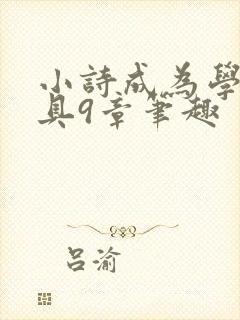 小詩成為學
具9章笔趣
吕渝